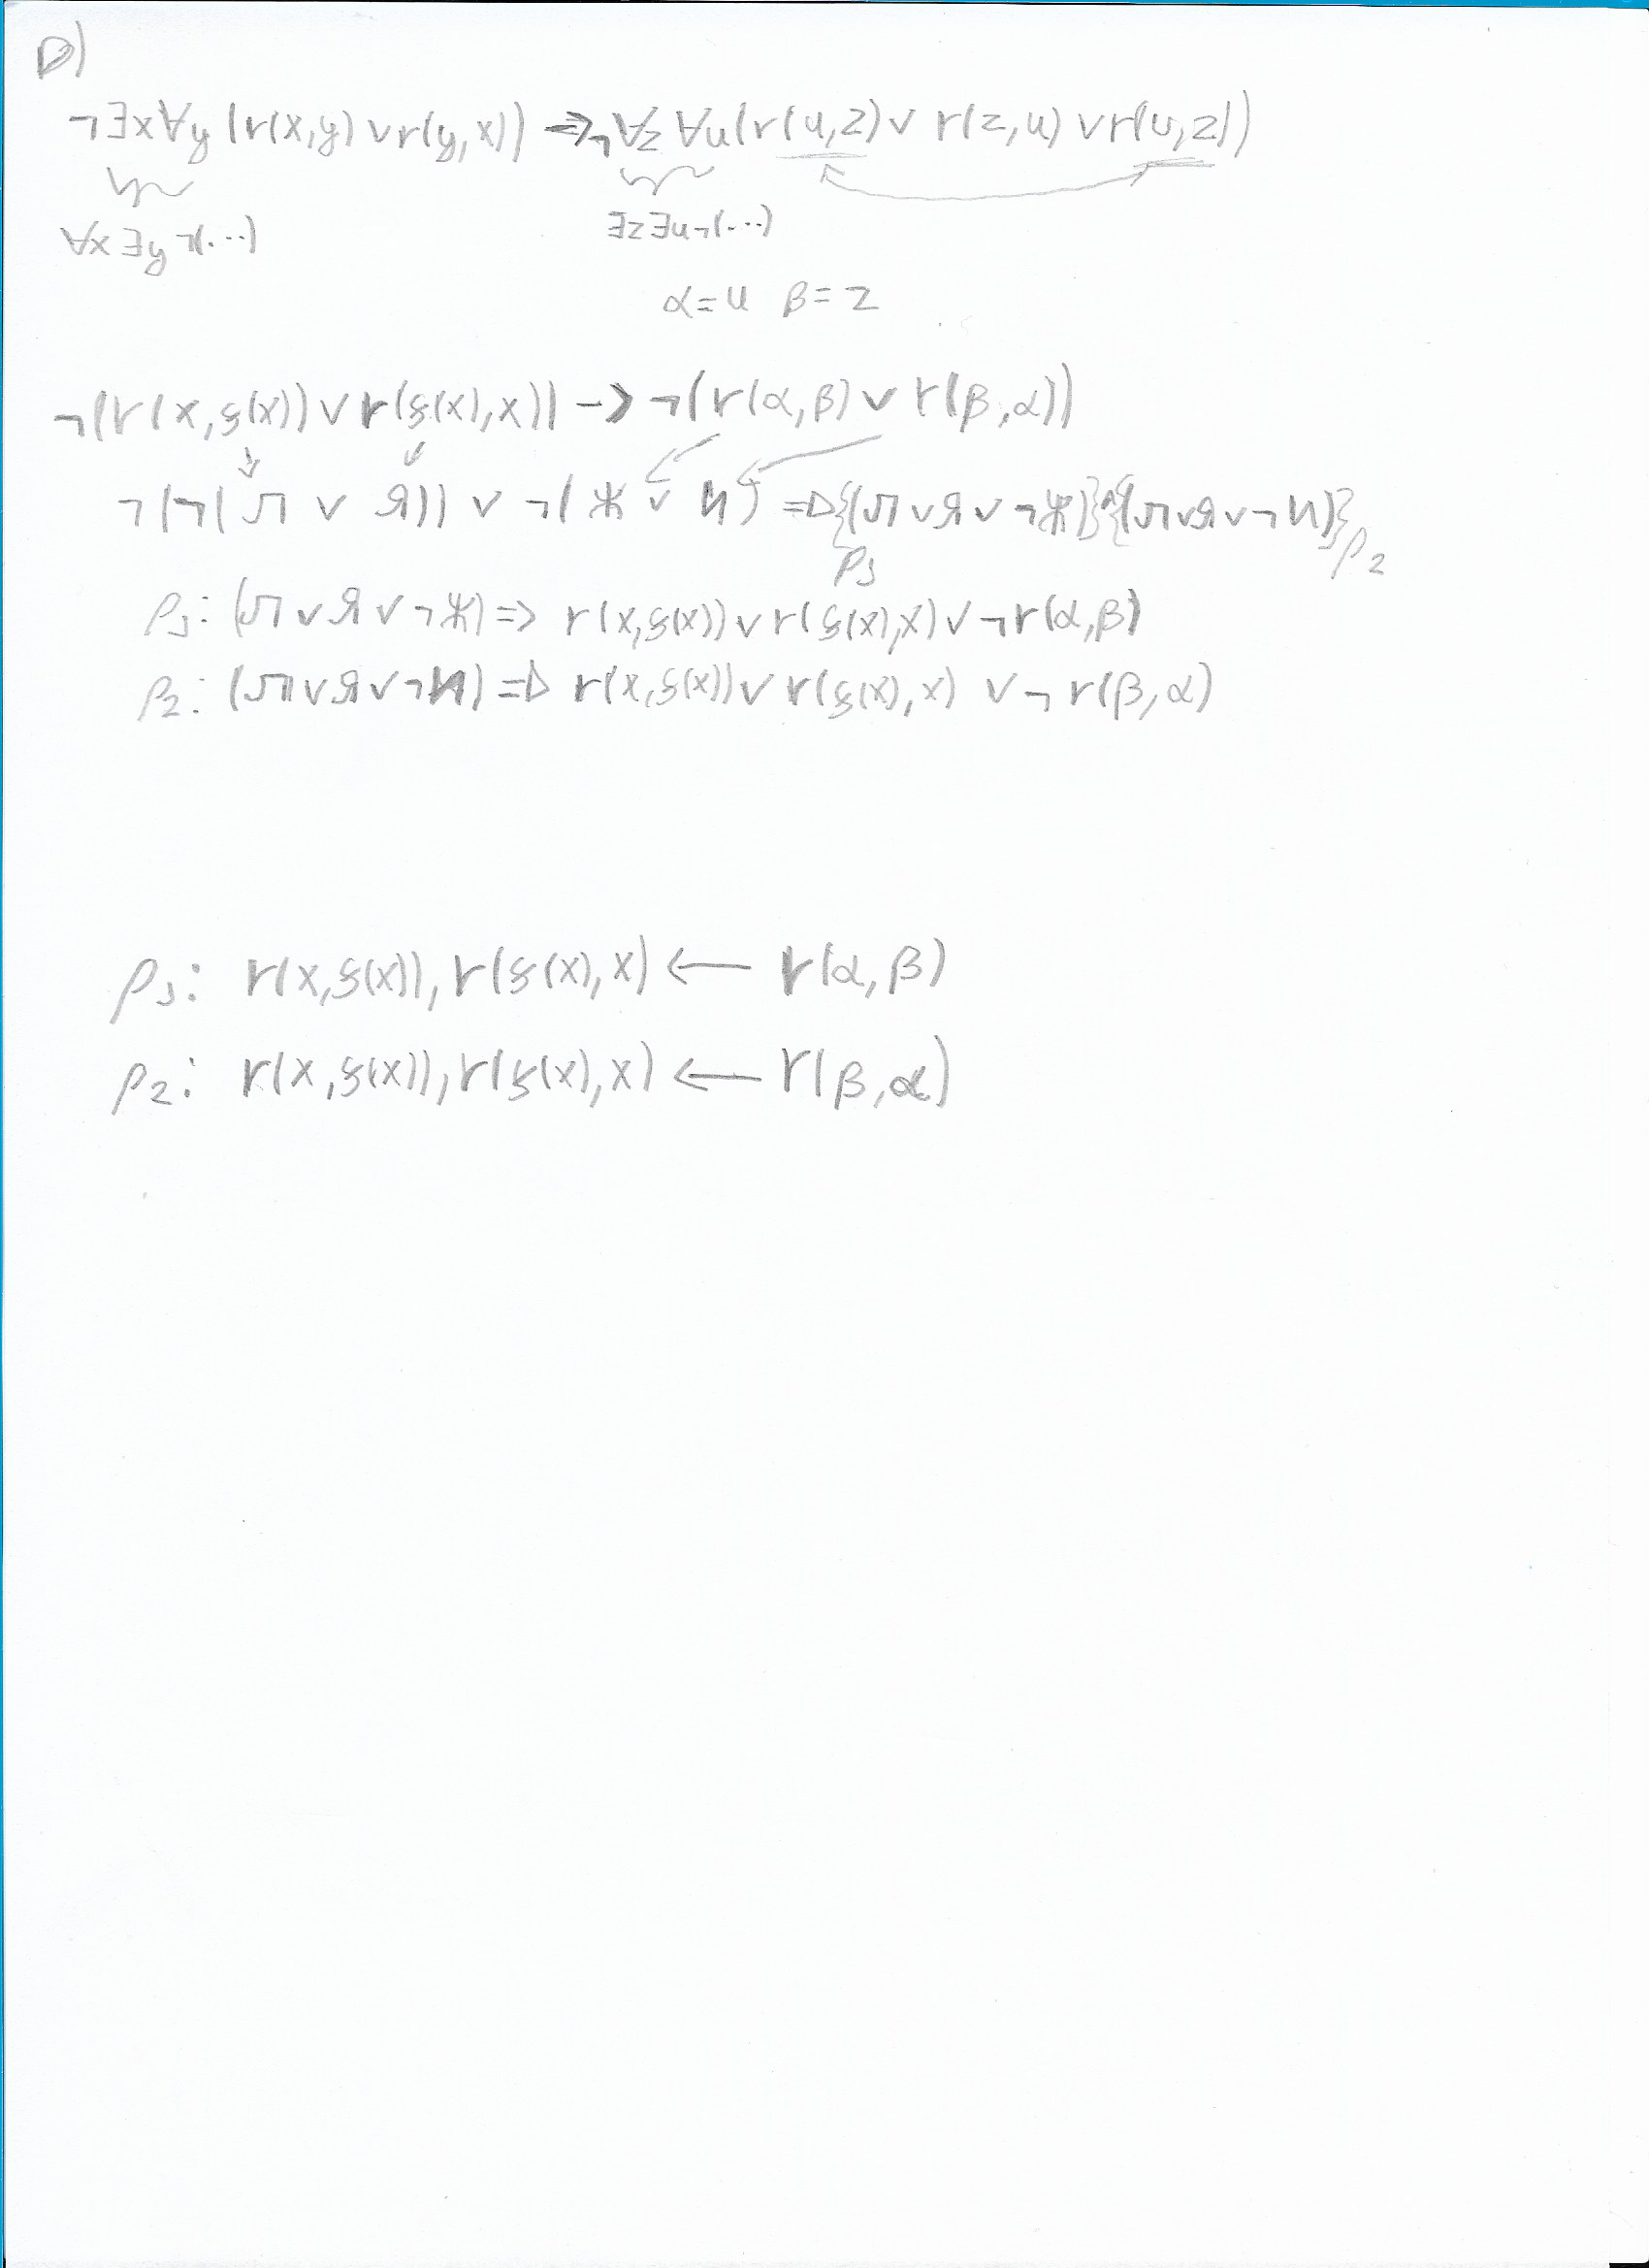 D)
¬∃x∀y (r(x,y) ∨ r(y,x)) → ¬∀z ∀u (r(u,z) ∨ r(z,u) ∨ r(u,z))
∀x ∃y ¬(...) ∃z ∃u ¬(...)
α=u β=z
¬(r(x,ξ(x)) ∨ r(ξ(x),x)) → ¬(r(α,β) ∨ r(β,α))
¬(¬(Л ∨ Я)) ∨ ¬(Ж ∨ И) => {(Л ∨ Я ∨ ¬Ж)} ∧ {(Л ∨ Я ∨ ¬И)}
ρ1 ρ2
ρ1: (Л ∨ Я ∨ ¬Ж) => r(x,ξ(x)) ∨ r(ξ(x),x) ∨ ¬r(α,β)
ρ2: (Л ∨ Я ∨ ¬И) => r(x,ξ(x)) ∨ r(ξ(x),x) ∨ ¬r(β,α)
ρ1: r(x,ξ(x)), r(ξ(x),x) ← r(α,β)
ρ2: r(x,ξ(x)), r(ξ(x),x) ← r(β,α)